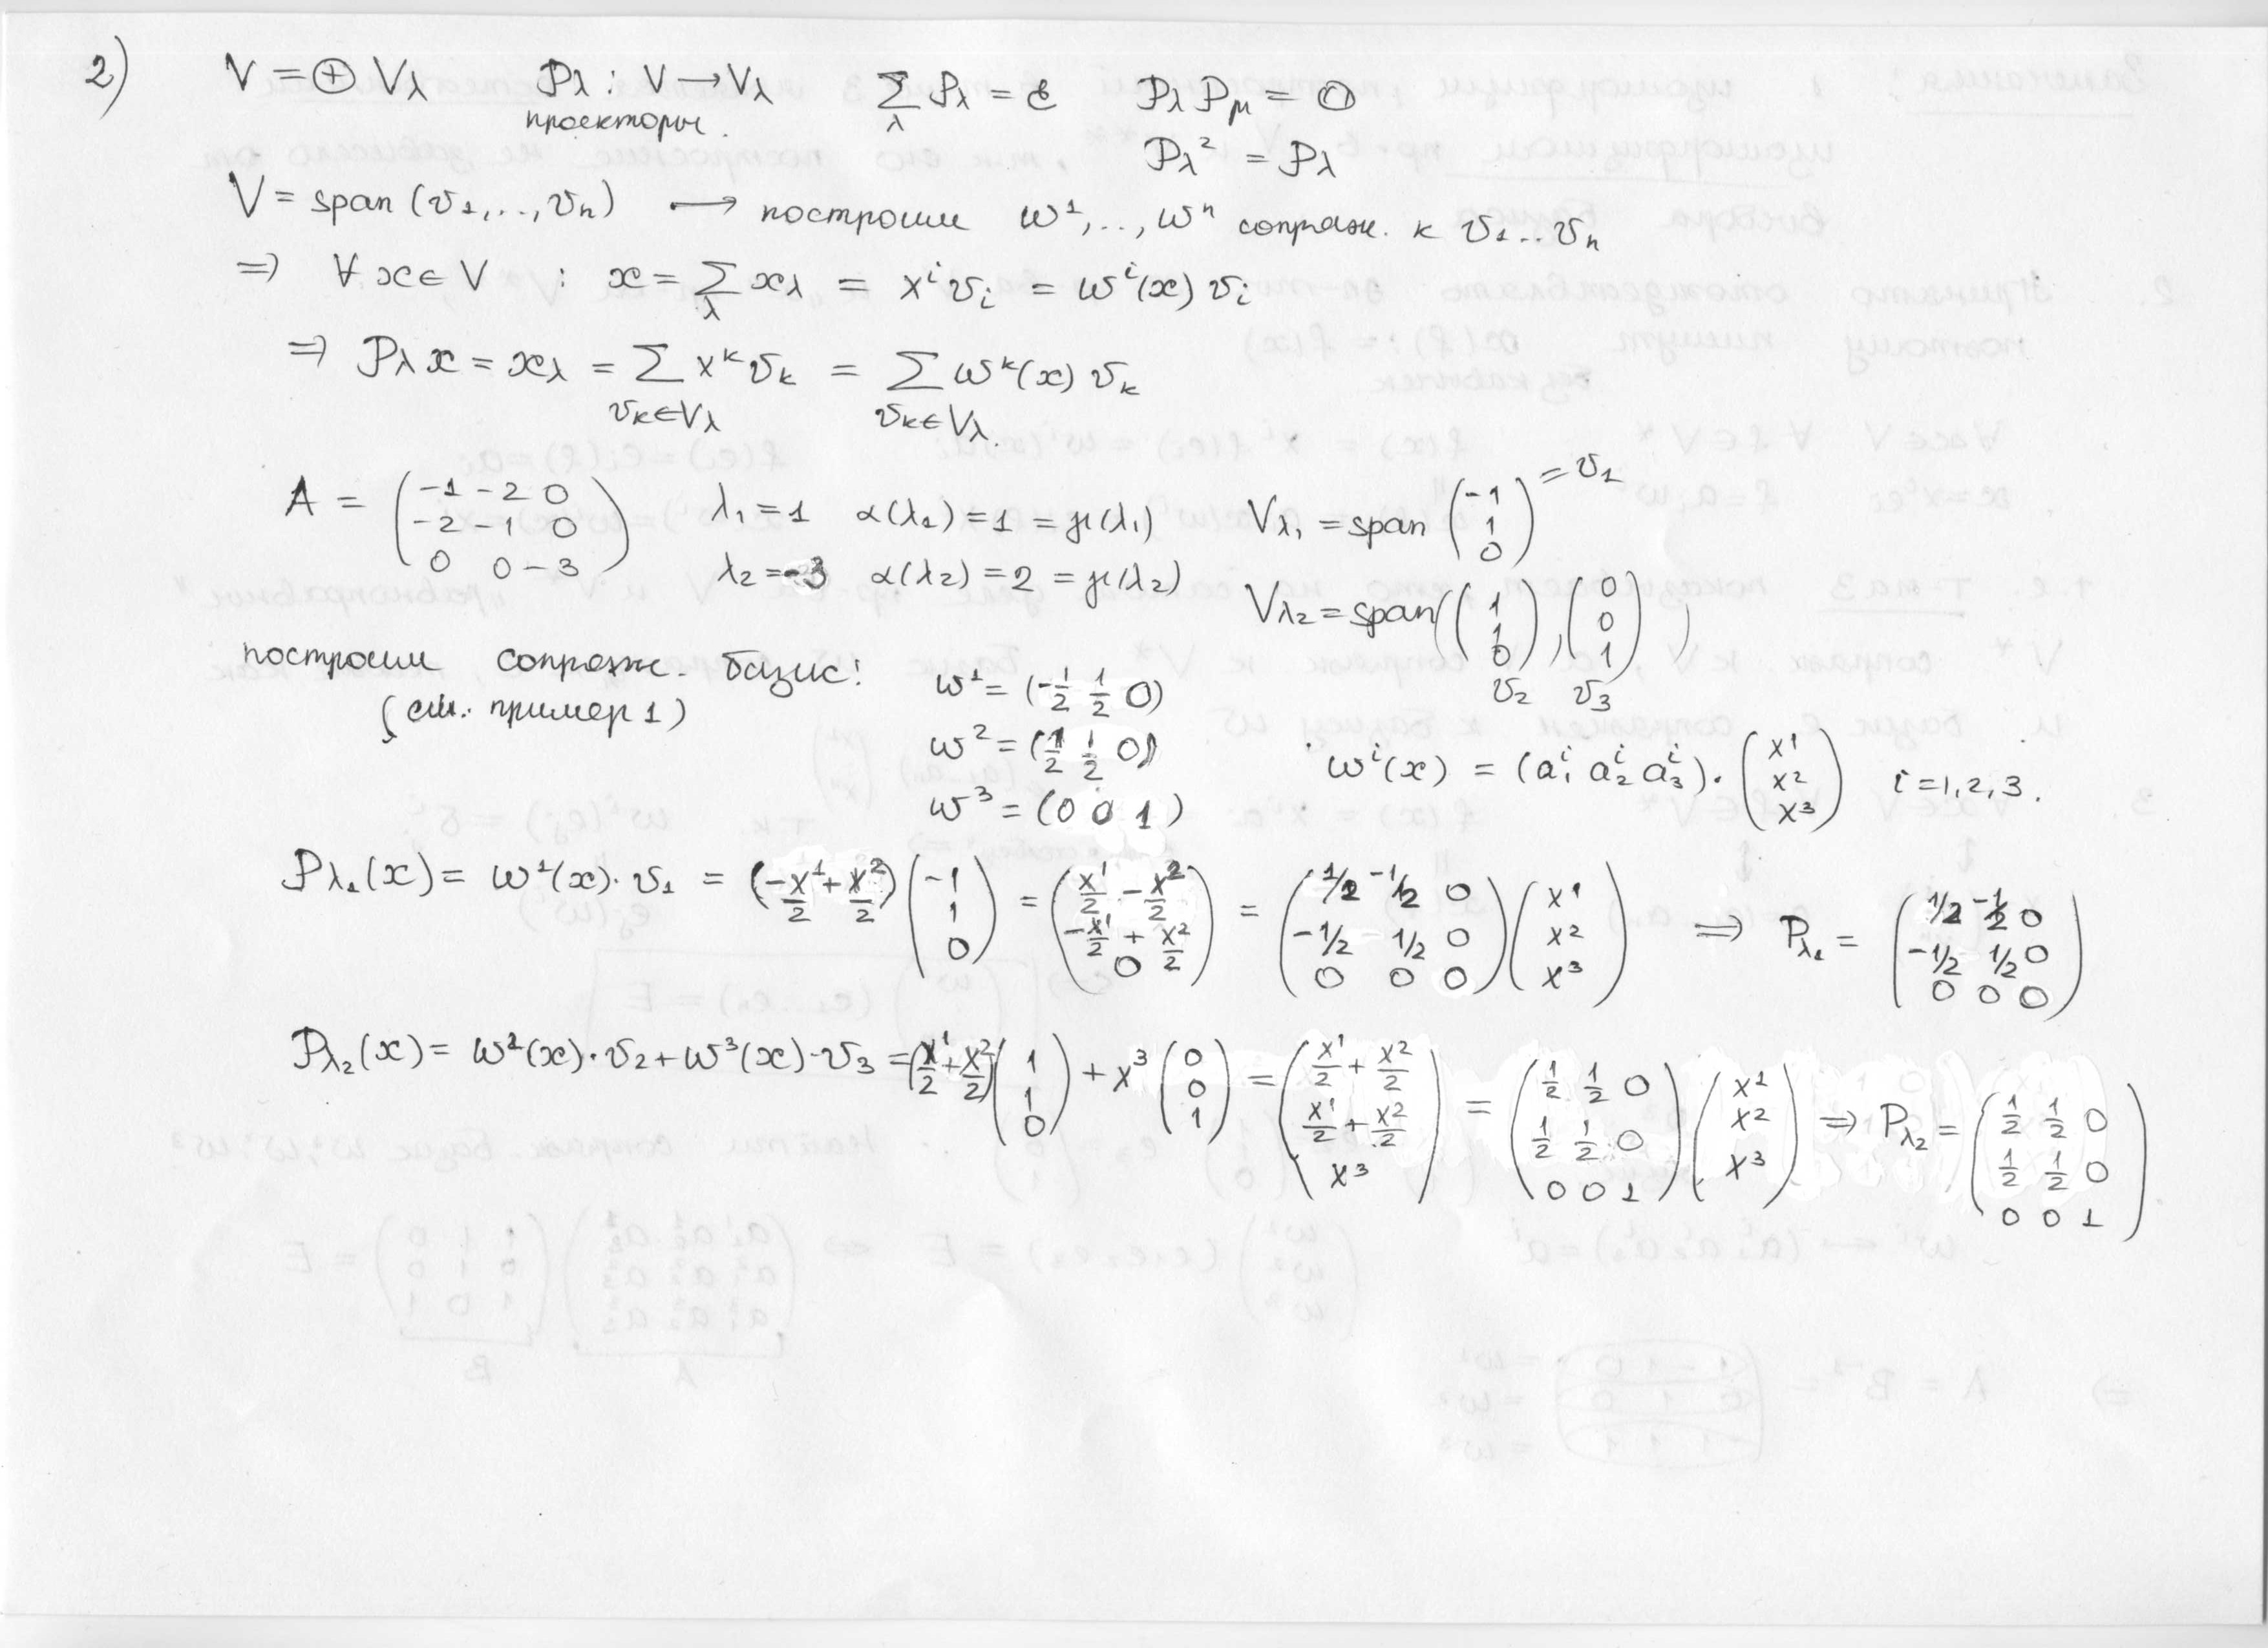 2) V = ⊕ Vλ   Pλ : V → Vλ   ∑ Pλ = ℰ   Pλ Pμ = 0
λ
проекторы.
Pλ² = Pλ
V = span (v₁,..,vₙ) ⟶ построим w¹,..,wⁿ сопряж. к v₁..vₙ
⇒ ∀ x ∈ V : x = ∑ xλ = xⁱ vᵢ = wⁱ(x) vᵢ
λ
⇒ Pλ x = xλ = ∑ xᵏ vₖ = ∑ wᵏ(x) vₖ
vₖ∈Vλ   vₖ∈Vλ.
A = (-1 -2 0; -2 -1 0; 0 0 -3)   λ₁ = 1   α(λ₁) = 1 = γ(λ₁)   Vλ₁ = span (-1; 1; 0) = v₁
λ₂ = -3   α(λ₂) = 2 = γ(λ₂)   Vλ₂ = span((1; 1; 0), (0; 0; 1))
v₂   v₃
построим сопряж. базис:
(см. пример 1)
w¹ = (-1/2 1/2 0)
w² = (1/2 1/2 0)
w³ = (0 0 1)
wⁱ(x) = (aⁱ₁ aⁱ₂ aⁱ₃) · (x¹; x²; x³)   i = 1, 2, 3.
Pλ₁(x) = w¹(x) · v₁ = (-x¹/2 + x²/2) (-1; 1; 0) = (x¹/2 - x²/2; -x¹/2 + x²/2; 0) = (1/2 -1/2 0; -1/2 1/2 0; 0 0 0) (x¹; x²; x³) ⇒ Pλ₁ = (1/2 -1/2 0; -1/2 1/2 0; 0 0 0)
Pλ₂(x) = w²(x) · v₂ + w³(x) · v₃ = (x¹/2 + x²/2) (1; 1; 0) + x³ (0; 0; 1) = (x¹/2 + x²/2; x¹/2 + x²/2; x³) = (1/2 1/2 0; 1/2 1/2 0; 0 0 1) (x¹; x²; x³) ⇒ Pλ₂ = (1/2 1/2 0; 1/2 1/2 0; 0 0 1)